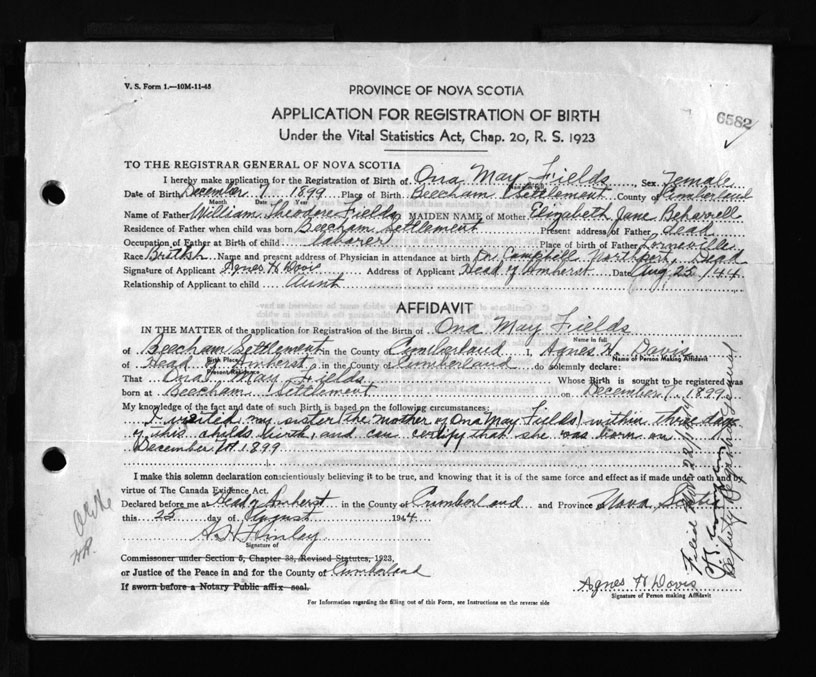 V. S. Form 1.—10M-11-43
PROVINCE OF NOVA SCOTIA
6582
APPLICATION FOR REGISTRATION OF BIRTH
Under the Vital Statistics Act, Chap. 20, R. S. 1923
TO THE REGISTRAR GENERAL OF NOVA SCOTIA
I hereby make application for the Registration of Birth of Ona May Fields Sex Female
Date of Birth December 7 1899 Place of Birth Beecham Settlement County of Cumberland
Month Date Year
Name of Father William Theodore Fields MAIDEN NAME of Mother Elizabeth Jane
Residence of Father when child was born Beecham Settlement Present address of Father dead
Occupation of Father at Birth of child laborer Place of birth of Father Lorneville
Race British Name and present address of Physician in attendance at birth Dr. Campbell Northport, Dead
Signature of Applicant Agnes H Davis Address of Applicant Head of Amherst Date Aug 25/44
Relationship of Applicant to child Aunt
AFFIDAVIT
IN THE MATTER of the application for Registration of the Birth of Ona May Fields
Name in full
of Beecham Settlement in the County of Cumberland I, Agnes H. Davis
Birth Place Name of Person Making Affidavit
of Head of Amherst in the County of Cumberland do solemnly declare:
Present Residence
That Ona May Fields Whose Birth is sought to be registered was
born at Beecham Settlement on December 1899
My knowledge of the fact and date of such Birth is based on the following circumstances:
I visited my sister (the mother of Ona May Fields) within three days
of this childs birth, and can certify that she was born on
December 1899
I make this solemn declaration conscientiously believing it to be true, and knowing that it is of the same force and effect as if made under oath and by
virtue of The Canada Evidence Act.
Declared before me at Head of Amherst in the County of Cumberland and Province Nova Scotia
this 25 day of August 1944
Signature of
Commissoner under Section 5, Chapter 38, Revised Statutes, 1923,
or Justice of the Peace in and for the County of Cumberland
If sworn before a Notary Public affix seal.
Agnes H Davis
Signature of Person making Affidavit
For Information regarding the filling out of this Form, see Instructions on the reverse side
Deputy Registrar General